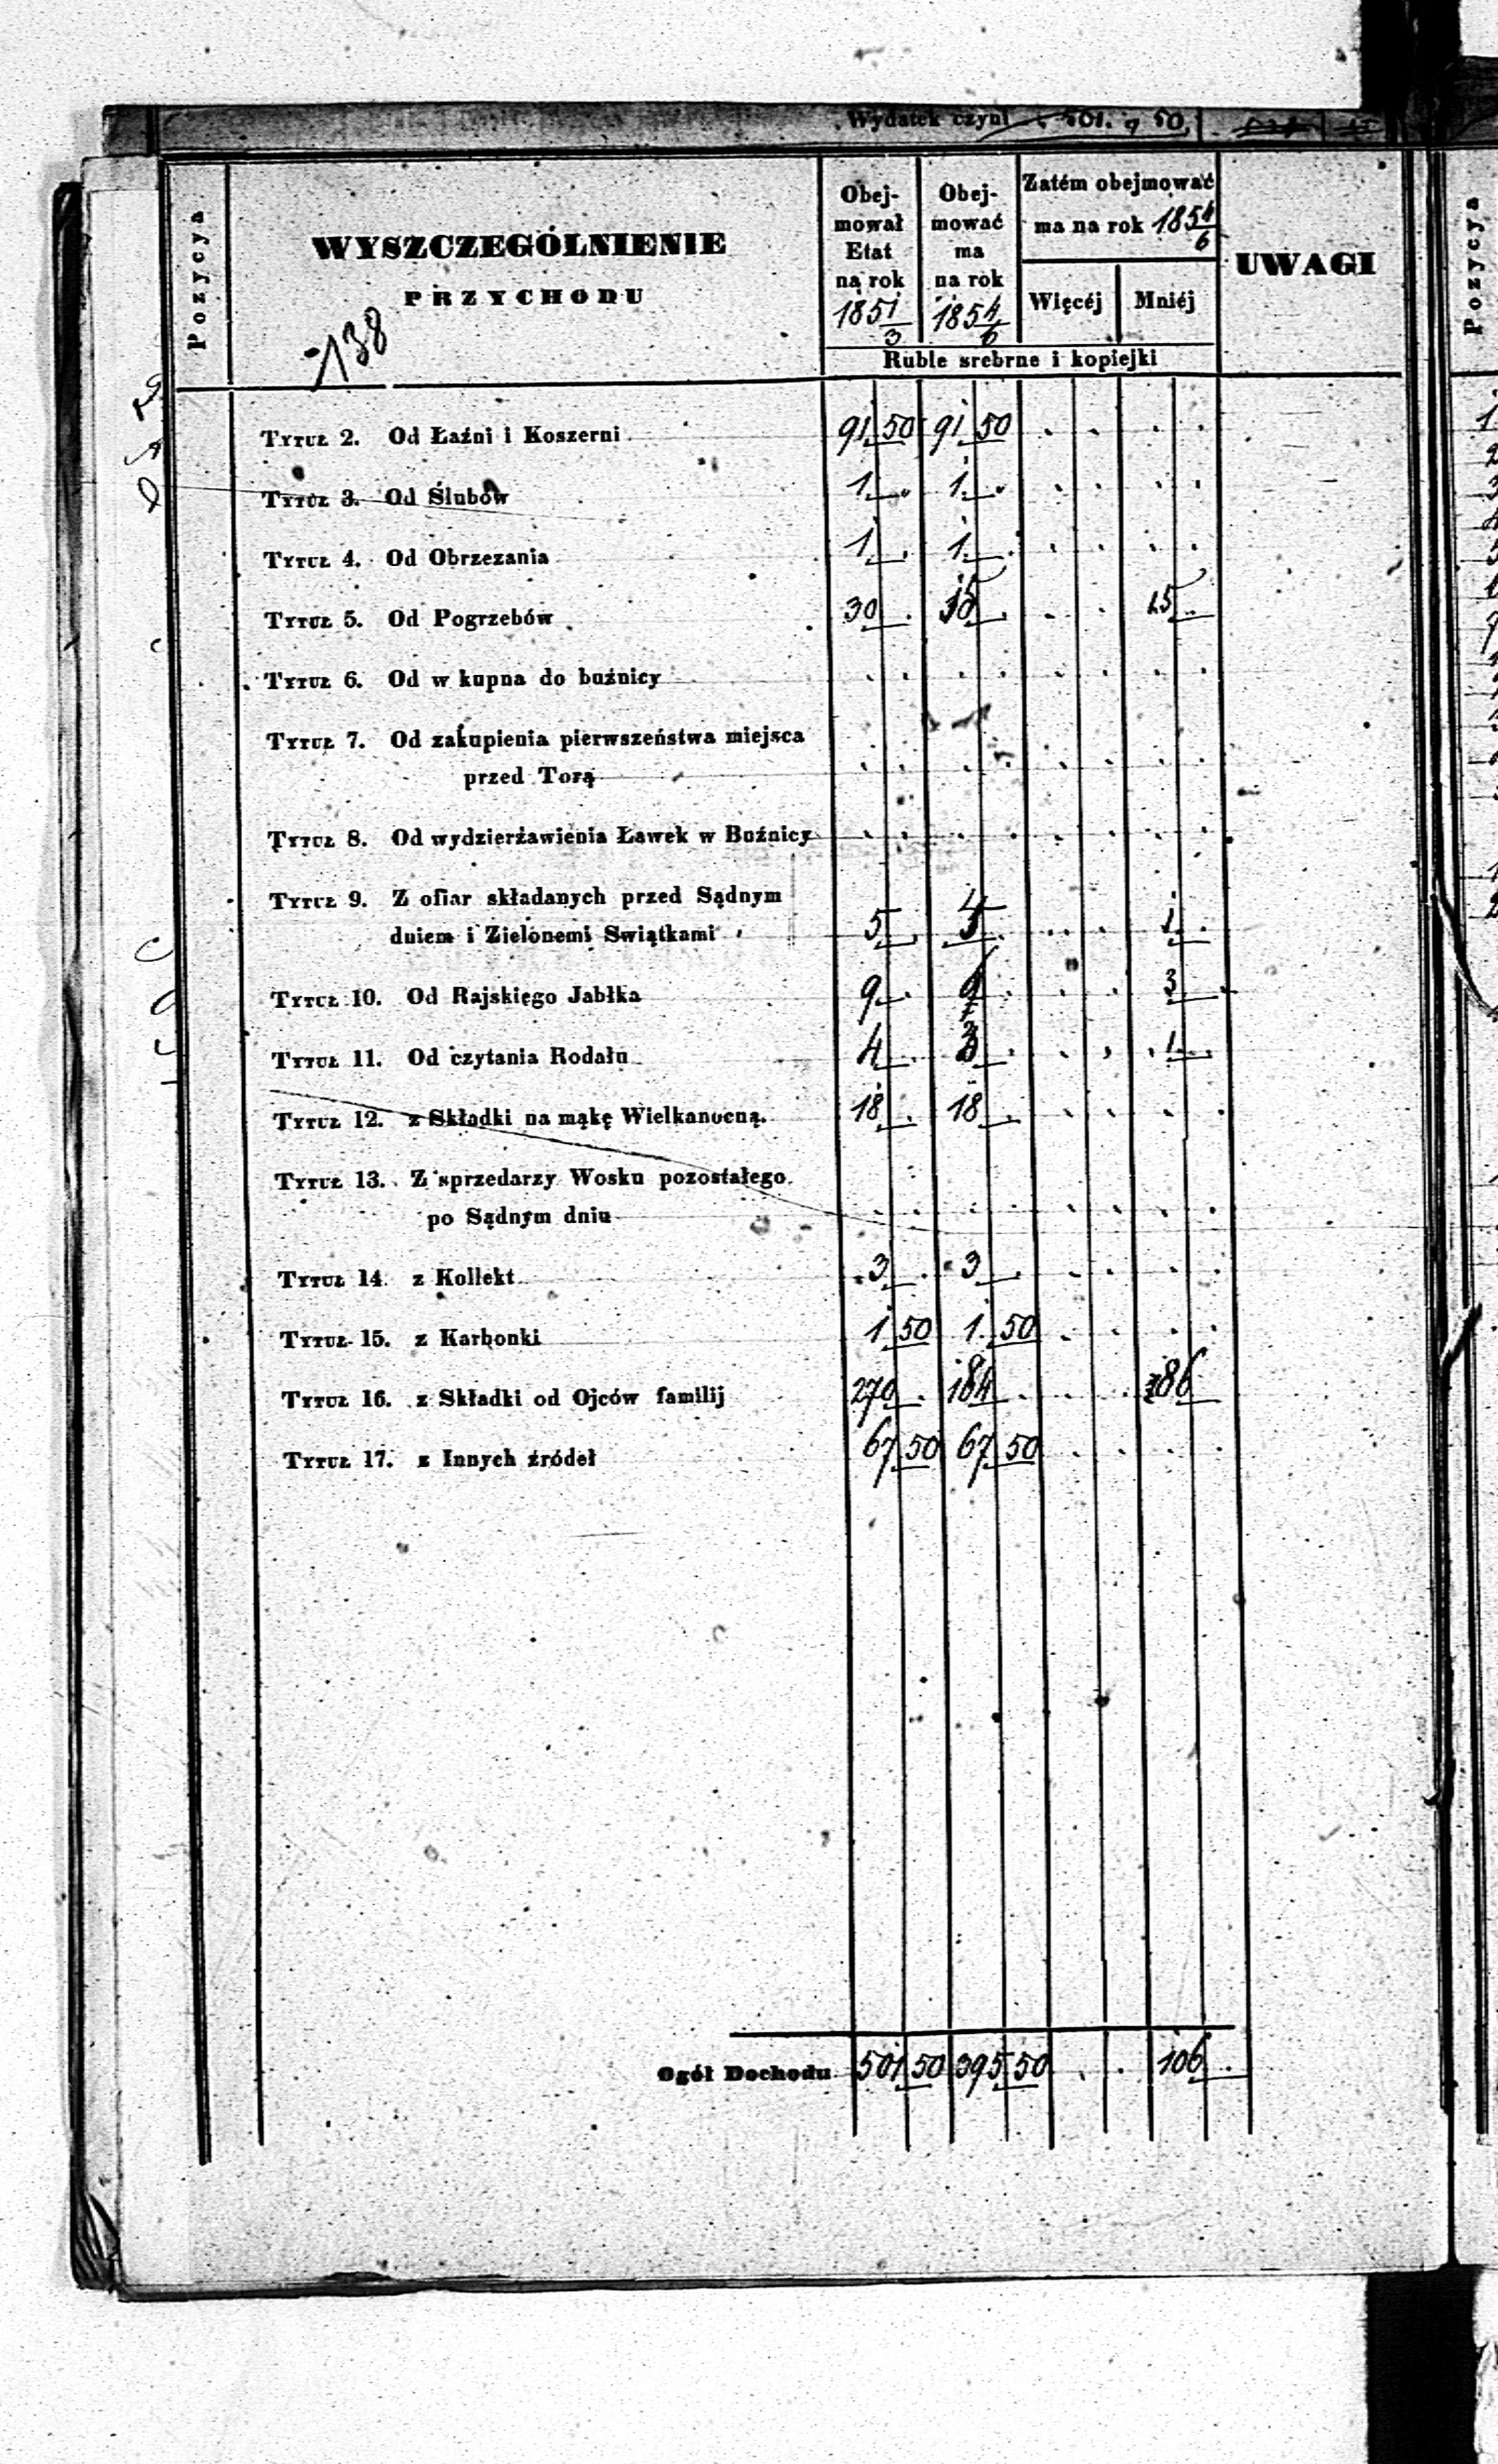 Wydatek czyni 501. 50
Pozycya
WYSZCZEGÓLNIENIE
PRZYCHODU
138
Obej-
mował
Etat
na rok
1851/3
Obej-
mować
ma
na rok
1854/6
Zatém obejmować
ma na rok 1854/6
Więcéj Mniéj
UWAGI
Ruble srebrne i kopiejki
Tytuł 2. Od Łaźni i Koszerni 91 50 91 50 . . . .
Tytuł 3. Od Ślubów 1 . 1 . . . . .
Tytuł 4. Od Obrzezania 1 . 1 . . . . .
Tytuł 5. Od Pogrzebów 30 . 15 . . . 15 .
Tytuł 6. Od w kupna do buźnicy . . . . . . . .
Tytuł 7. Od zakupienia pierwszeństwa miejsca
przed Torą . . . . . . . .
Tytuł 8. Od wydzierżawienia Ławek w Buźnicy . . . . . . . .
Tytuł 9. Z ofiar składanych przed Sądnym
dniem i Zielonemi Swiątkami 5 . 4 . . . 1 .
Tytuł 10. Od Rajskiego Jabłka 9 . . . . 3
Tytuł 11. Od czytania Rodału 4 . 3 . . . 1 .
Tytuł 12. z Składki na mąkę Wielkanocną. 18 . 18 . . . . .
Tytuł 13. Z sprzedarzy Wosku pozostałego
po Sądnym dniu . . . . . . . .
Tytuł 14. z Kollekt 3 . 3 . . . . .
Tytuł 15. z Karbonki 1 50 1 50 . . . .
Tytuł 16. z Składki od Ojców familij 270 . 184 . . . 86
Tytuł 17. z Innych źródeł 67 50 67 50 . . . .
Ogół Dochodu 501 50 395 50 . . 106 .
Pozycya